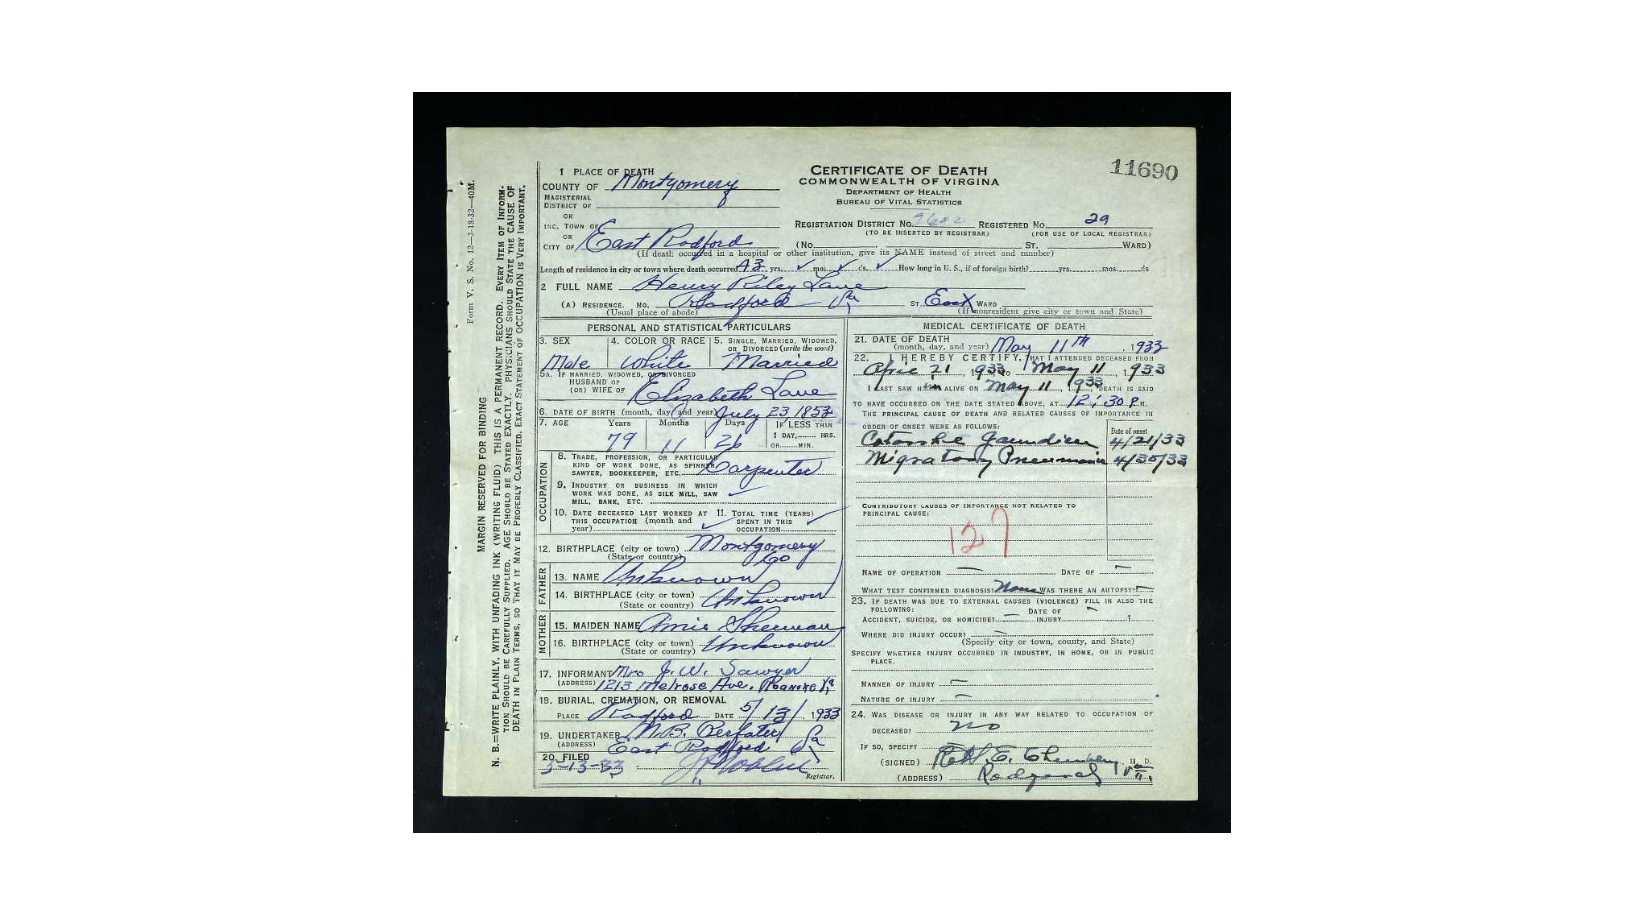 11690
1 PLACE OF DEATH
CERTIFICATE OF DEATH
COUNTY OF Montgomery
COMMONWEALTH OF VIRGINIA
MAGISTERIAL
DEPARTMENT OF HEALTH
DISTRICT OF
BUREAU OF VITAL STATISTICS
OR
INC. TOWN OF
REGISTRATION DISTRICT No. REGISTERED No. 29
OR
(TO BE INSERTED BY REGISTRAR) (FOR USE OF LOCAL REGISTRAR)
CITY OF East Radford (No. ST. WARD)
(If death occurred in a hospital or other institution, give its NAME instead of street and number)
Length of residence in city or town where death occurred 43 yrs. mos. ds. How long in U. S., if of foreign birth? yrs. mos. ds
2 FULL NAME Henry Riley Lane
(A) RESIDENCE. No. Radford Va ST. East WARD
(Usual place of abode) (If nonresident give city or town and State)
PERSONAL AND STATISTICAL PARTICULARS
3. SEX 4. COLOR OR RACE 5. SINGLE, MARRIED, WIDOWED,
OR DIVORCED (write the word)
Male White Married
5A. IF MARRIED, WIDOWED, OR DIVORCED
HUSBAND OF
(OR) WIFE OF Elizabeth Lane
6. DATE OF BIRTH (month, day, and year) July 23 1853
7. AGE Years Months Days IF LESS THAN
1 DAY, HRS.
79 11 26 OR MIN.
OCCUPATION
8. TRADE, PROFESSION, OR PARTICULAR
KIND OF WORK DONE, AS SPINNER,
SAWYER, BOOKKEEPER, ETC. Carpenter
9. INDUSTRY OR BUSINESS IN WHICH
WORK WAS DONE, AS SILK MILL, SAW
MILL, BANK, ETC.
10. DATE DECEASED LAST WORKED AT 11. TOTAL TIME (YEARS)
THIS OCCUPATION (month and SPENT IN THIS
year) OCCUPATION
12. BIRTHPLACE (city or town) Montgomery
(State or country) Co
FATHER
13. NAME Unknown
14. BIRTHPLACE (city or town) Unknown
(State or country)
MOTHER
15. MAIDEN NAME Amie Sherman
16. BIRTHPLACE (city or town) Unknown
(State or country)
17. INFORMANT Mrs J. W. Sawyer
(ADDRESS) 1213 Melrose Ave. Roanoke Va
18. BURIAL, CREMATION, OR REMOVAL
PLACE Radford DATE 5/13/, 1933
19. UNDERTAKER M.B.
(ADDRESS) East Radford Va
20. FILED
5-13-33 Registrar.
MEDICAL CERTIFICATE OF DEATH
21. DATE OF DEATH
(month, day, and year) May 11th, 1933
22. I HEREBY CERTIFY, THAT I ATTENDED DECEASED FROM
April 21, 1933 TO May 11, 1933
I LAST SAW HIM ALIVE ON May 11, 1933 DEATH IS SAID
TO HAVE OCCURRED ON THE DATE STATED ABOVE, AT 12:30 P.M.
THE PRINCIPAL CAUSE OF DEATH AND RELATED CAUSES OF IMPORTANCE IN
ORDER OF ONSET WERE AS FOLLOWS: Date of onset
4/21/33
Migratory Pneumonia 4/30/33
CONTRIBUTORY CAUSES OF IMPORTANCE NOT RELATED TO
PRINCIPAL CAUSE:
127
NAME OF OPERATION DATE OF
WHAT TEST CONFIRMED DIAGNOSIS? None WAS THERE AN AUTOPSY?
23. IF DEATH WAS DUE TO EXTERNAL CAUSES (VIOLENCE) FILL IN ALSO THE
FOLLOWING: DATE OF
ACCIDENT, SUICIDE, OR HOMICIDE? INJURY 1
WHERE DID INJURY OCCUR?
(Specify city or town, county, and State)
SPECIFY WHETHER INJURY OCCURRED IN INDUSTRY, IN HOME, OR IN PUBLIC
PLACE.
MANNER OF INJURY
NATURE OF INJURY
24. WAS DISEASE OR INJURY IN ANY WAY RELATED TO OCCUPATION OF
DECEASED? No
IF SO, SPECIFY
(SIGNED) M. D.
(ADDRESS) Radford Va.
Form V. S. No. 12—3-18-32—40M.
MARGIN RESERVED FOR BINDING
N. B.—WRITE PLAINLY, WITH UNFADING INK (WRITING FLUID) THIS IS A PERMANENT RECORD. EVERY ITEM OF INFORM-
TION SHOULD BE CAREFULLY SUPPLIED. AGE SHOULD BE STATED EXACTLY. PHYSICIANS SHOULD STATE THE CAUSE OF
DEATH IN PLAIN TERMS, SO THAT IT MAY BE PROPERLY CLASSIFIED. EXACT STATEMENT OF OCCUPATION IS VERY IMPORTANT.